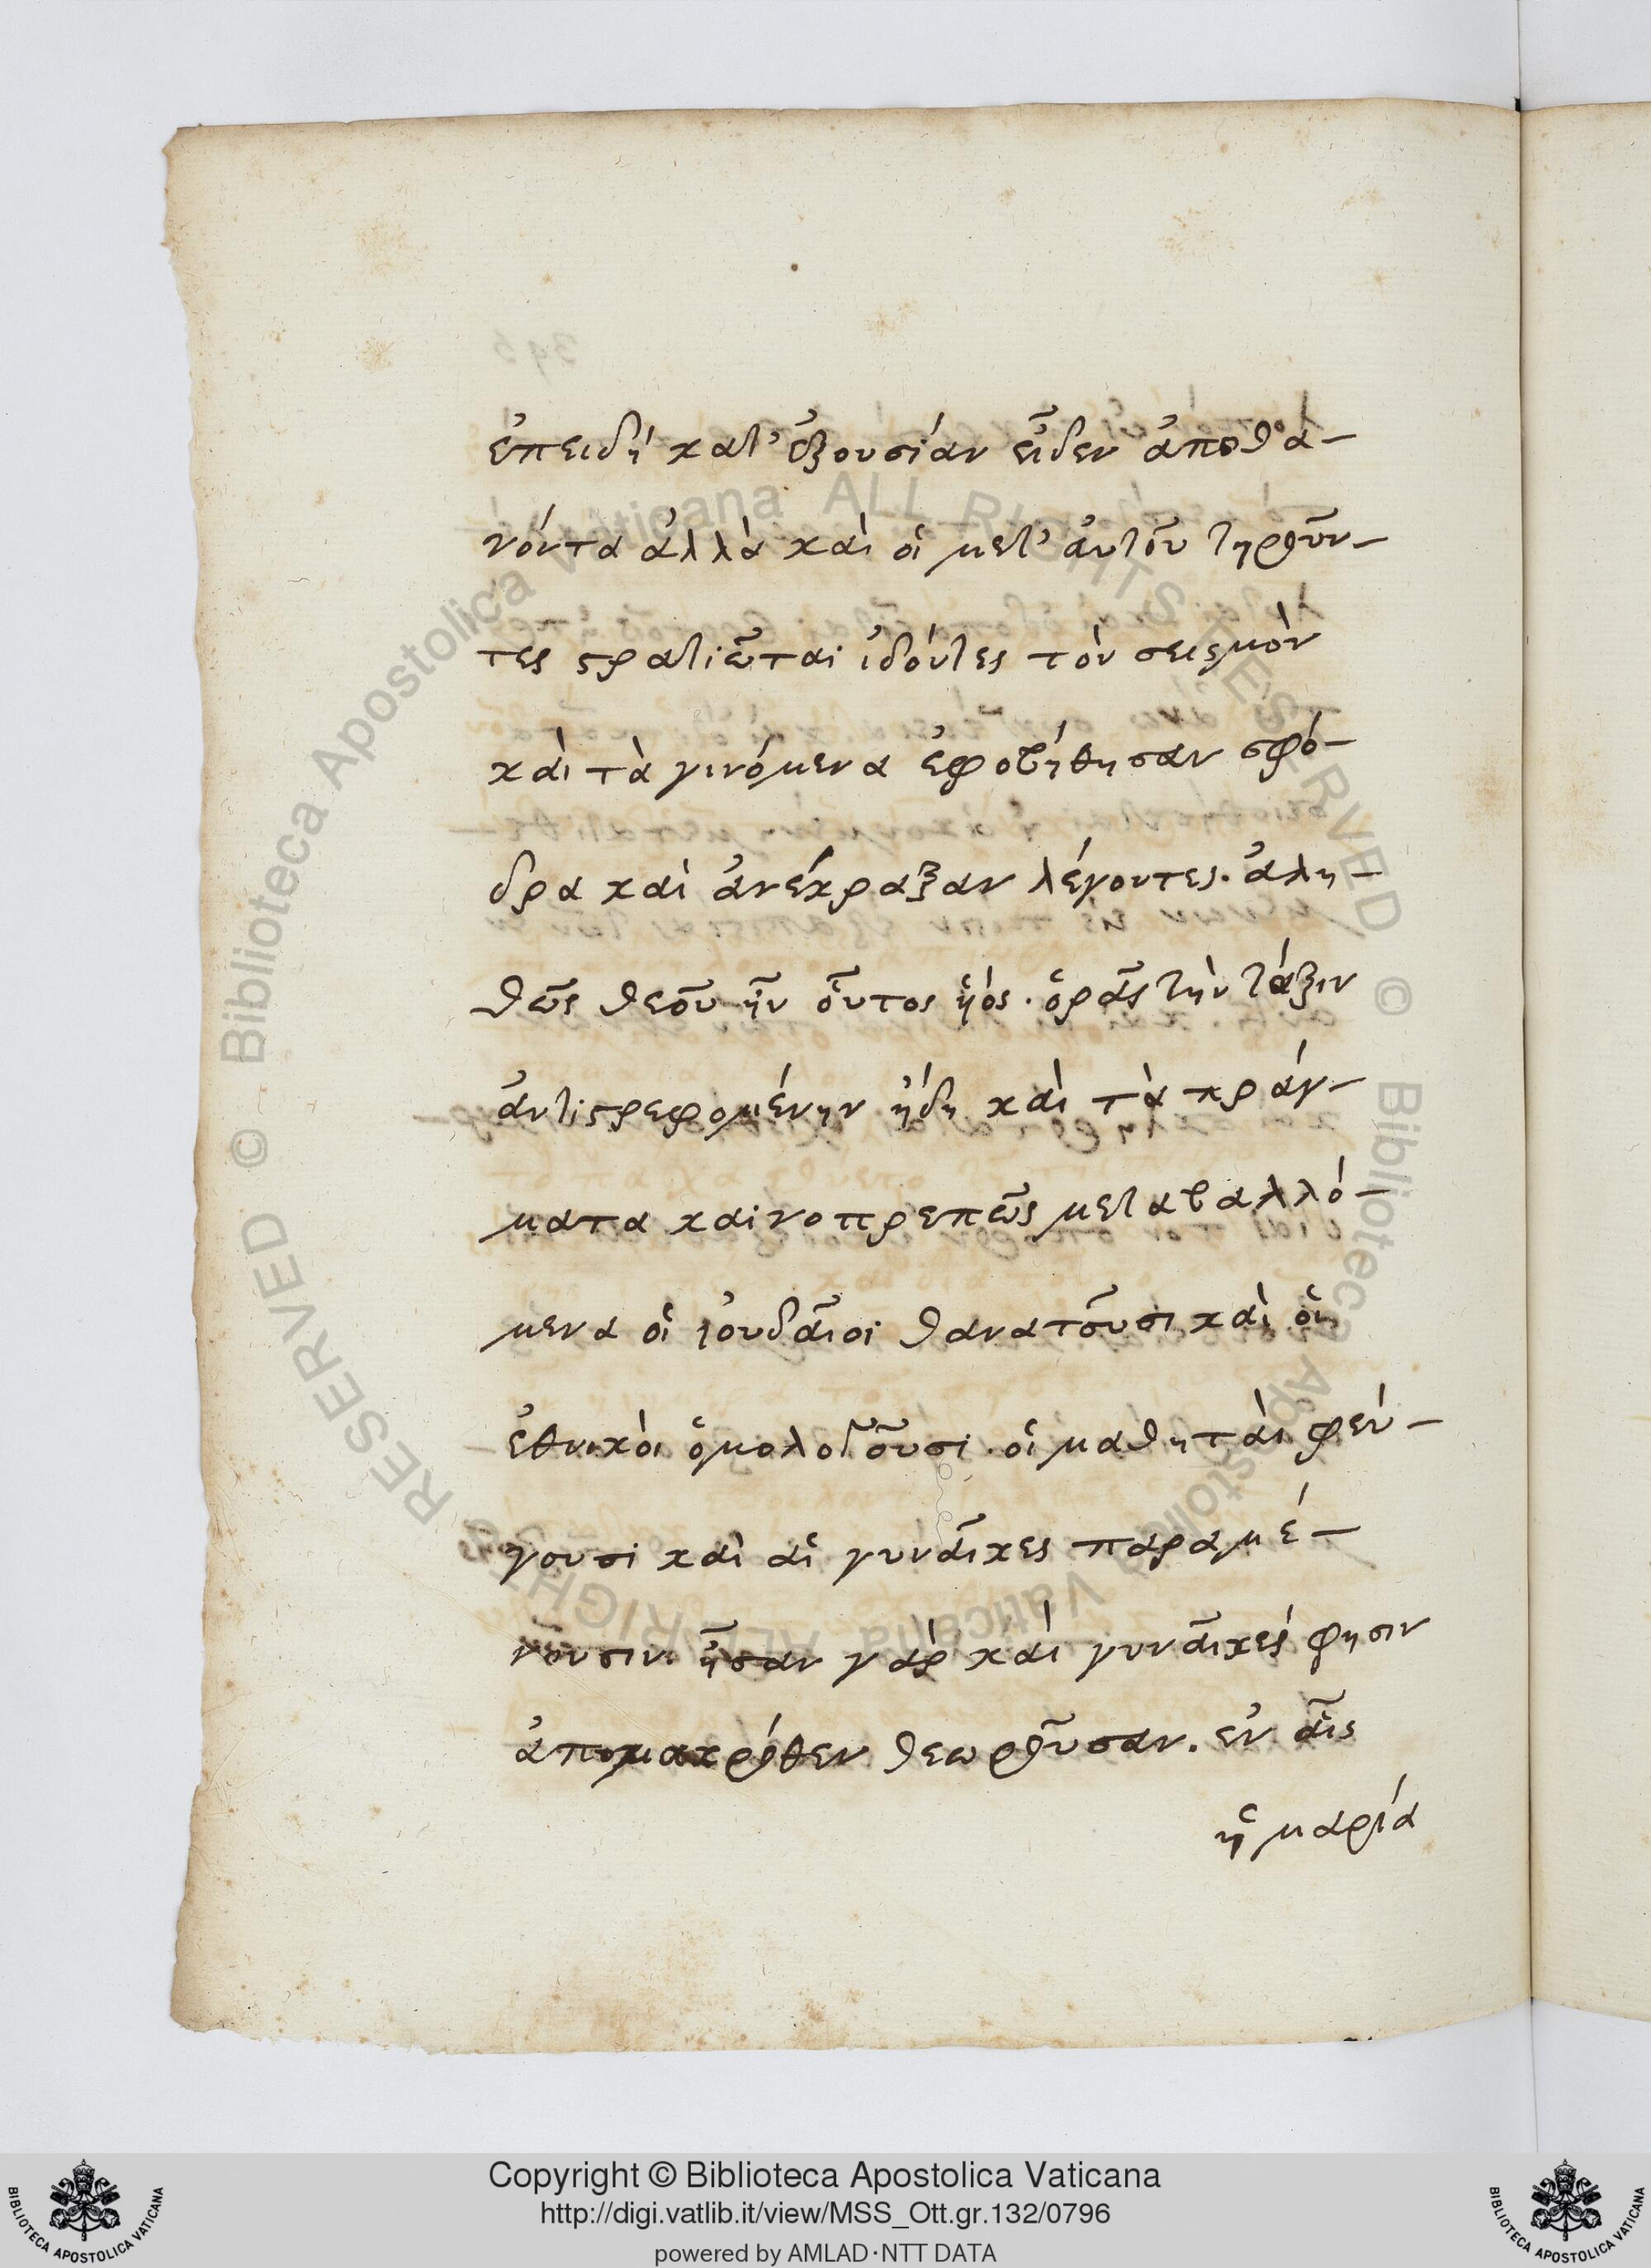 ἐπειδὴ κατ' ἐξουσίαν εἶδεν ἀποθα-
νόντα ἀλλὰ καὶ οἱ μετ' αὐτοῦ τηροῦν-
τες στρατιῶται ἰδόντες τὸν σεισμὸν
καὶ τὰ γινόμενα ἐφοβήθησαν σφό-
δρα καὶ ἀνέκραξαν λέγοντες. ἀλη-
θῶς θεοῦ ἦν οὗτος ὑός. ὁρᾷς τὴν τάξιν
ἀντιστρεφομένην ἤδη καὶ τὰ πράγ-
ματα καινοπρεπῶς μεταβαλλό-
μενα οἱ ἰουδαῖοι θανατοῦσι καὶ οἱ
ἐθνικοὶ ὁμολογοῦσι. οἱ μαθηταὶ φεύ-
γουσι καὶ αἱ γυναῖκες παραμέ-
νουσιν. ἦσαν γὰρ καὶ γυναῖκές φησιν
ἀπομακρόθεν θεωροῦσαν. ἐν αἷς
ἡ μαρία
Copyright © Biblioteca Apostolica Vaticana
http://digi.vatlib.it/view/MSS_Ott.gr.132/0796
powered by AMLAD·NTT DATA
BIBLIOTECA APOSTOLICA VATICANA
BIBLIOTECA APOSTOLICA VATICANA
© Biblioteca Apostolica Vaticana ALL RIGHTS RESERVED
© Biblioteca Apostolica Vaticana ALL RIGHTS RESERVED